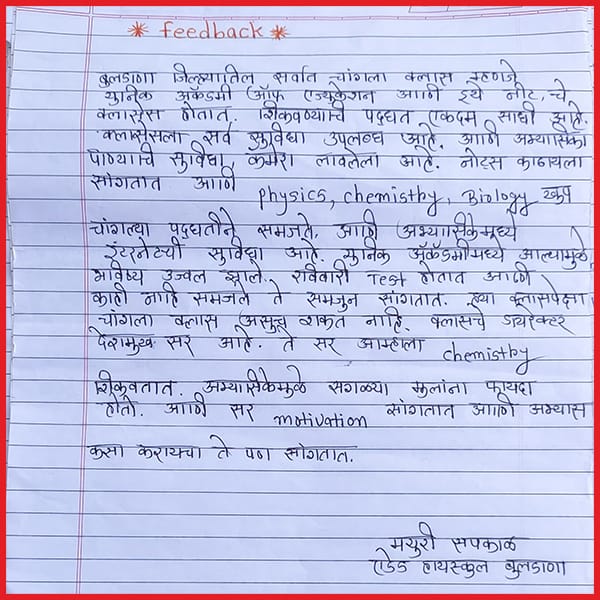 * feedback *
बुलडाणा जिल्ह्यातिल सर्वात चांगला क्लास म्हणजे
युनिक अकॅडमी ऑफ एज्युकेशन आणि इथे नीट, चे
क्लासेस होतात. शिकवण्याचि पद्धत एकदम साधी आहे.
क्लासेसला सर्व सुविधा उपलब्ध आहे. आणि अभ्यासिका
पाण्याचि सुविधा, कॅमेरा लावलेला आहे. नोट्स काढायला
सांगतात आणि physics, chemisthy, Biology खुप
चांगल्या पद्धतीने समजते. आणि अभ्यासिकेमध्ये
इंटरनेटची सुविधा आहे. युनिक अकॅडमीमध्ये आल्यामुळे
भविष्य उज्वल झाले. रविवारी Test होतात आणि
काही नाहि समजले ते समजुन सांगतात. ह्या क्लासपेक्षा
चांगला क्लास असुच शकत नाहि. क्लासचे डायरेक्टर
देशमुख सर आहे. ते सर आम्हाला chemisthy
शिकवतात. अभ्यासिकेमुळे सगळ्या मुलांना फायदा
होतो. आणि सर motivation सांगतात आणि अभ्यास
कसा करायचा ते पण सांगतात.
मयुरी सपकाळ
ऐडेड हायस्कुल बुलडाणा